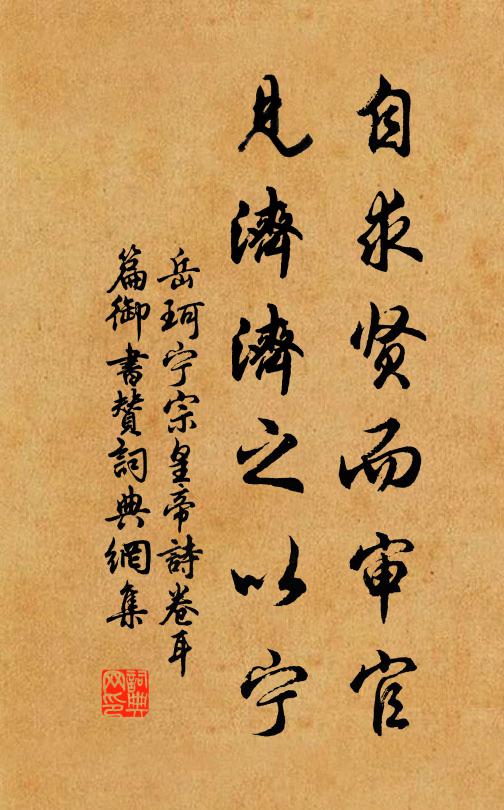 自求贤而审官
见濟濟之以宁
岳珂宁宗皇帝詩卷耳
篇御書赞詞典網集
詞典
网印